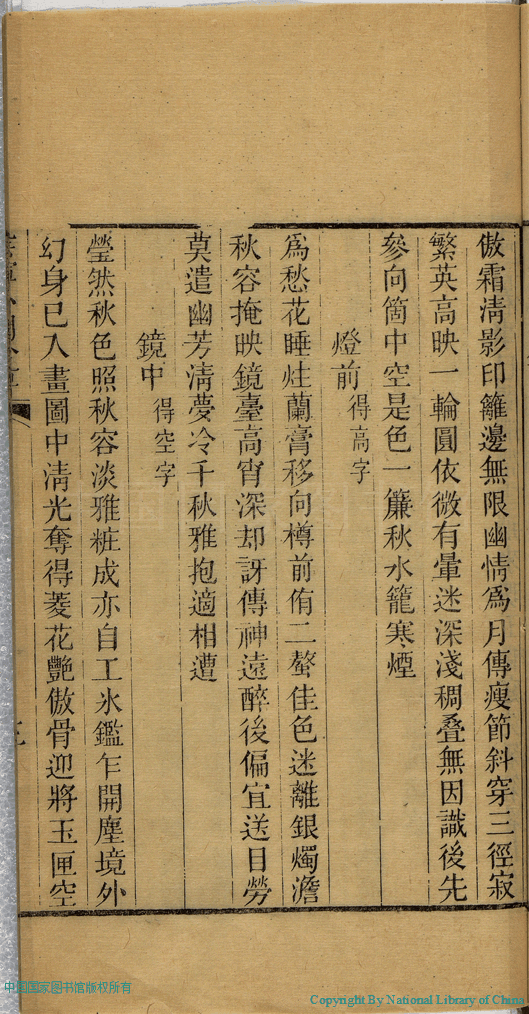 傲霜清影印籬邊無限幽情為月傳瘦節斜穿三徑寂
繁英高映一輪圓依微有暈迷深淺稠叠無因識後先
參向箇中空是色一簾秋水籠寒煙
燈前 得高字
為愁花睡炷蘭膏移向樽前侑二螯佳色迷離銀燭澹
秋容掩映鏡臺高宵深却訝傳神遠醉後偏宜送目勞
莫遣幽芳清夢冷千秋雅抱適相遭
鏡中 得空字
瑩然秋色照秋容淡雅粧成亦自工氷鑑乍開塵境外
幻身已入畫圖中清光奪得菱花艷傲骨迎將玉匣空
中国国家图书馆版权所有
Copyright By National Library of China